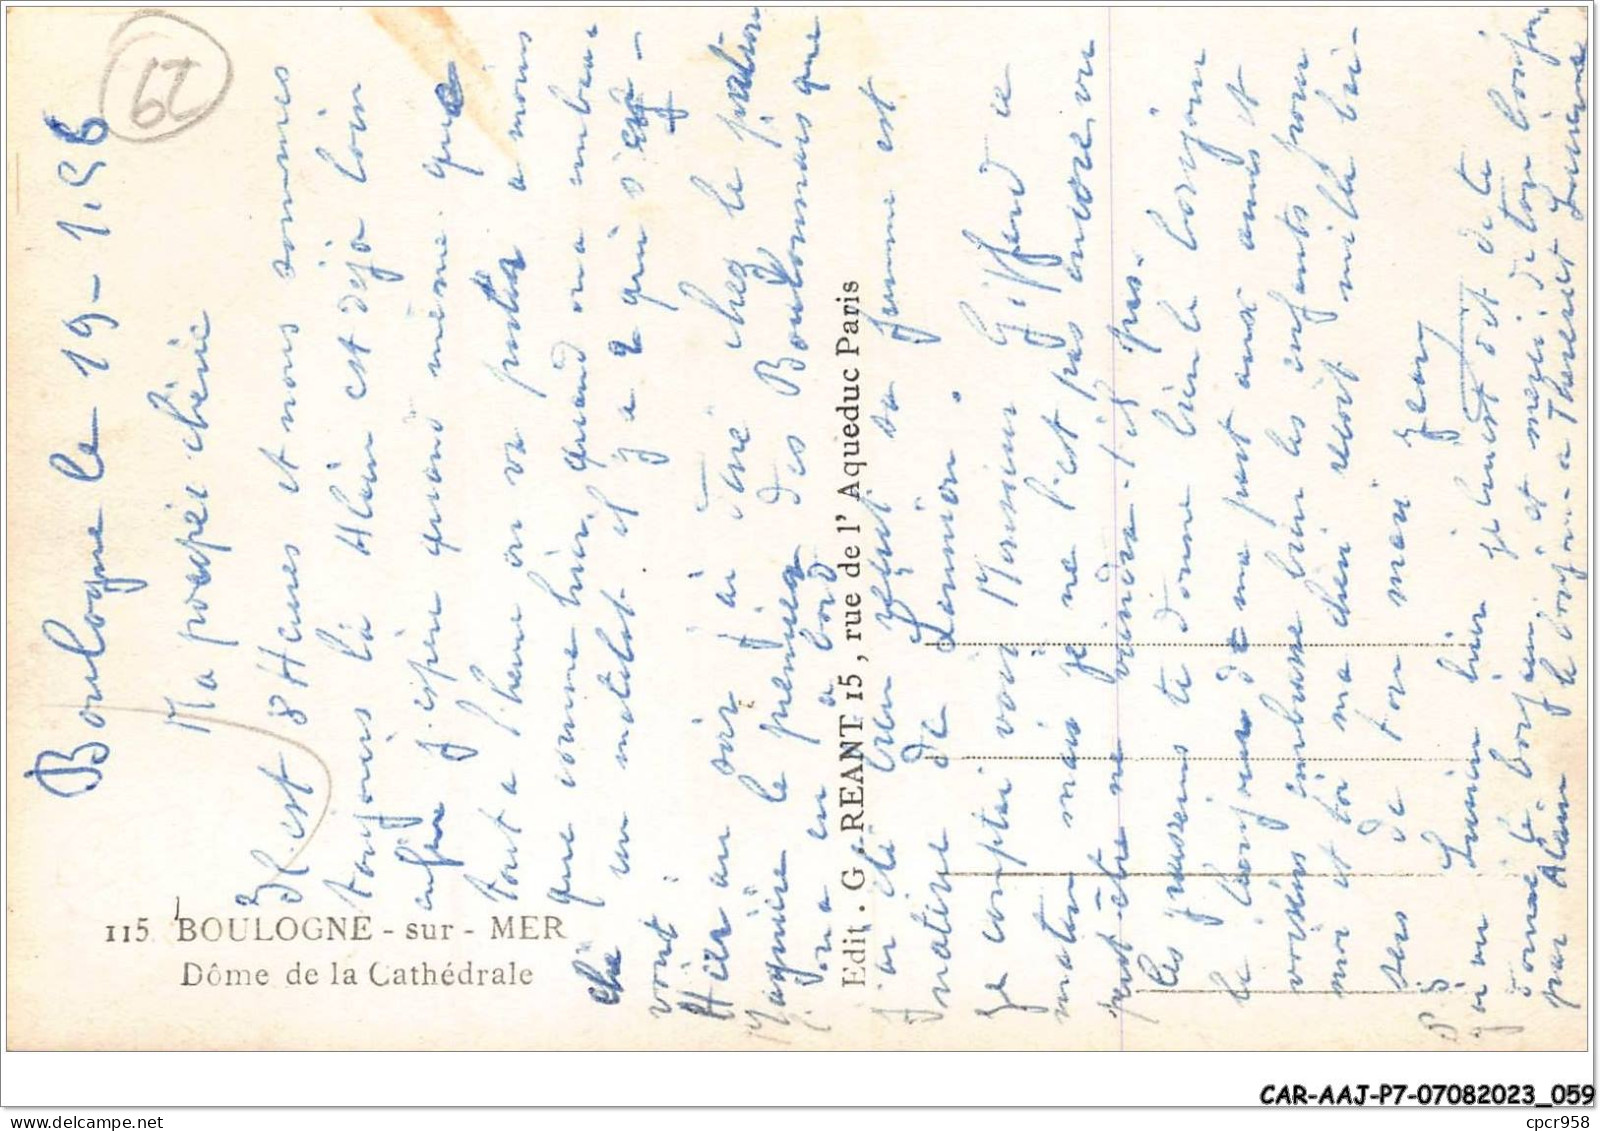 62
Boulogne le 19-1.56
Ma poupée chérie
Il est 8 Heures et nous sommes
toujours là Alain est déjà loin
enfin j'espère quand même que
tout a l'heure on va partir a moins
que comme hier, quand on a embau
ché un matelot. il y a 2 qui s'en
vont.
Hier au soir j'ai été chez le patron
Maquière le premier des Boulonnais que
on a eu a bord
j'ai été bien reçut sa femme est
native de Lannion.
Je comptai voir Monsieur Giffend ce
matin mais je ne l'est pas encore vu
peut être ne viendra-t-il pas.
Les garsens te donne bien le bonjour
le bonjour de me part aux amis et
voisins embrasse bien les enfants pour
moi et toi ma chérie reçoit mille bai-
sers de ton mari Jean
P S Lucien hier
donne le bonjour et merci de ton bonjour
par Alain le bonjour a Thérèse et Lucienne
115 BOULOGNE - sur - MER
Dôme de la Cathédrale
Edit. G. REANT 15, rue de l'Aqueduc Paris
CAR-AAJ-P7-07082023_059
www.delcampe.net
cpcr958